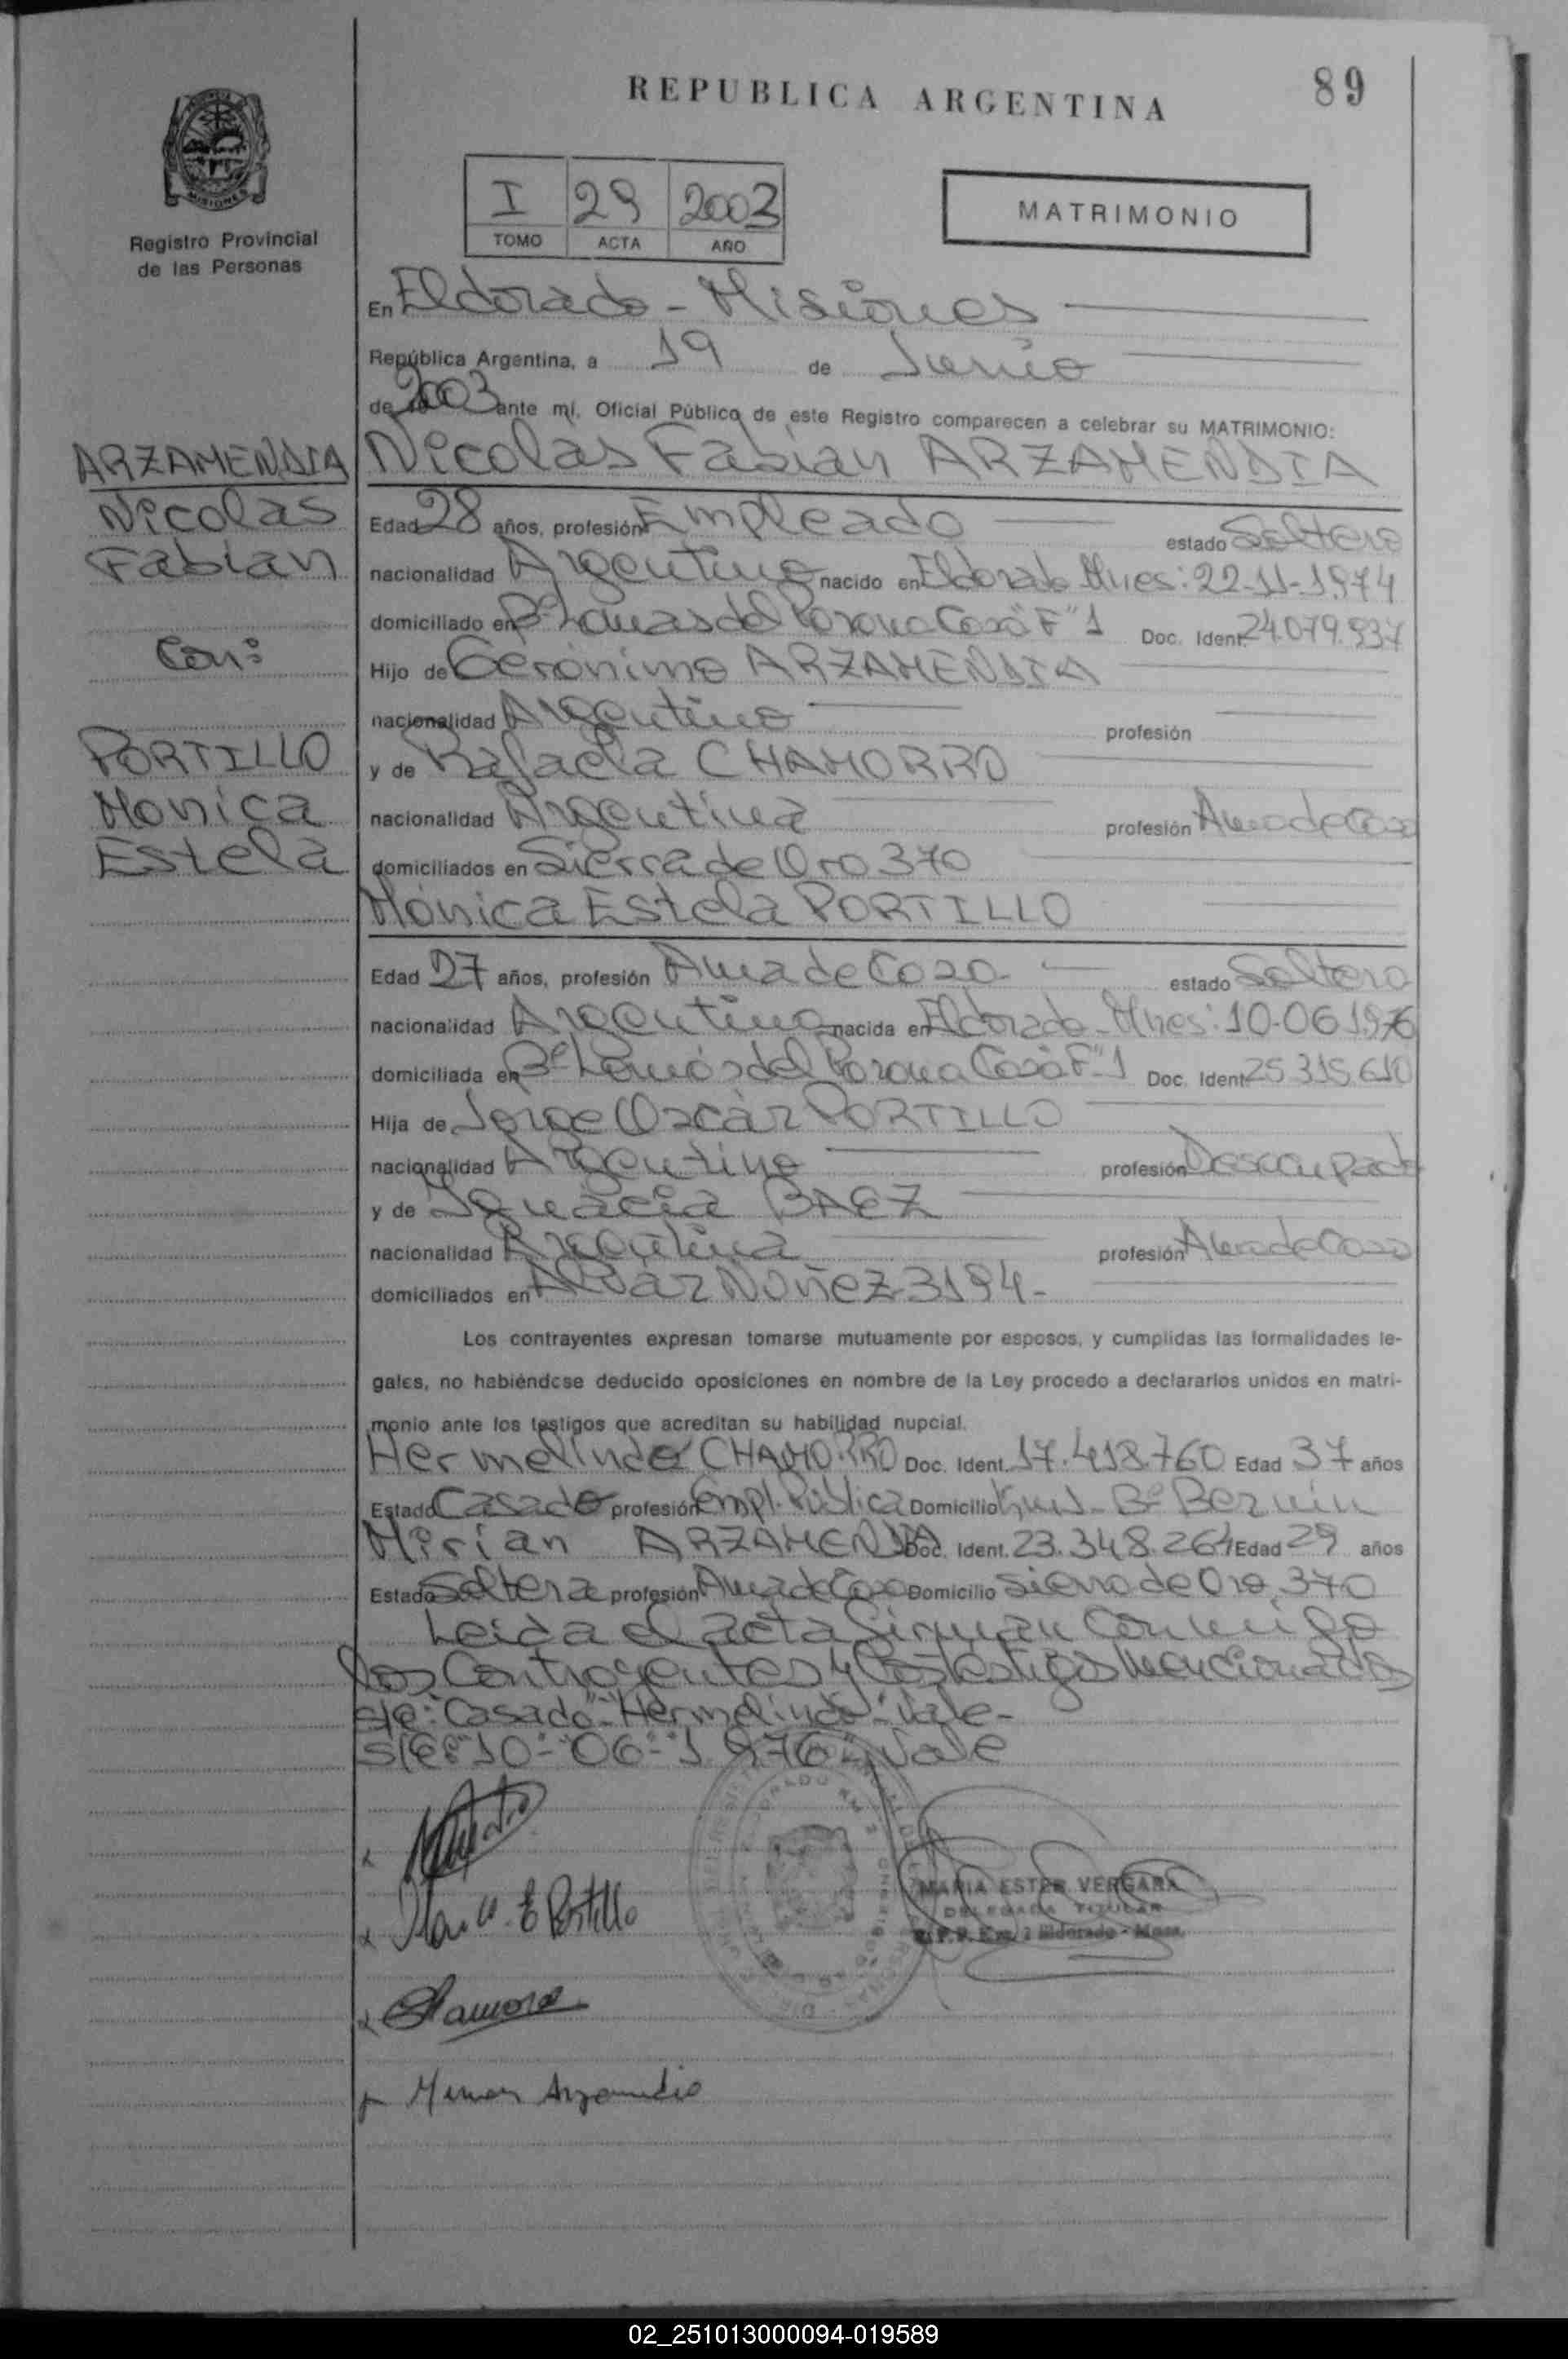 REPUBLICA ARGENTINA
89
Registro Provincial
de las Personas
I 29 2003
TOMO ACTA AÑO
MATRIMONIO
En Eldorado - Misiones
República Argentina, a 19 de Junio
de 2003 ante mí, Oficial Público de este Registro comparecen a celebrar su MATRIMONIO:
ARZAMENDIA
Nicolas
Fabian
Con:
PORTILLO
Monica
Estela
Nicolas Fabian ARZAMENDIA
Edad 28 años, profesión Empleado estado Soltero
nacionalidad Argentino nacido en Eldorado Mnes: 22-11-1974
domiciliado en Bº Lomas del Parana Casa "F" 1 Doc. Ident. 24.079.937
Hijo de Gerónimo ARZAMENDIA
nacionalidad Argentino profesión
y de Rafaela CHAMORRO
nacionalidad Argentina profesión Ama de Casa
domiciliados en Sierra de Oro 370
Mónica Estela PORTILLO
Edad 27 años, profesión Ama de Casa estado Soltera
nacionalidad Argentina nacida en Eldorado - Mnes: 10-06 1976
domiciliada en Bº Lomas del Parana Casa F" 1 Doc. Ident. 25 315.610
Hija de Jorge Oscar PORTILLO
nacionalidad Argentino profesión Desocupado
y de Ignacia BAEZ
nacionalidad Argentina profesión Ama de Casa
domiciliados en Alvar Nuñez 3194-
Los contrayentes expresan tomarse mutuamente por esposos, y cumplidas las formalidades le-
gales, no habiéndose deducido oposiciones en nombre de la Ley procedo a declararlos unidos en matri-
monio ante los testigos que acreditan su habilidad nupcial.
Hermelindo CHAMORRO Doc. Ident. 17.418.760 Edad 37 años
Estado Casado profesión Empl. Publica Domicilio Bº
Mirian ARZAMENDIA Doc. Ident. 23.348.264 Edad 29 años
Estado Soltera profesión Ama de Casa Domicilio Sierra de Oro 370
Leida el acta firman conmigo
los Contrayentes y los testigos mencionados
s/e: "Casado" - "Hermelindo" - Vale-
s/e: "10-"06-"1976- Vale
M E Portillo
Chamorro
Mirian Arzamendia
MARIA ESTER VERGARA
DELEGADA TITULAR
R.P.P. Km. 2 Eldorado - Mnes.
02_251013000094-019589